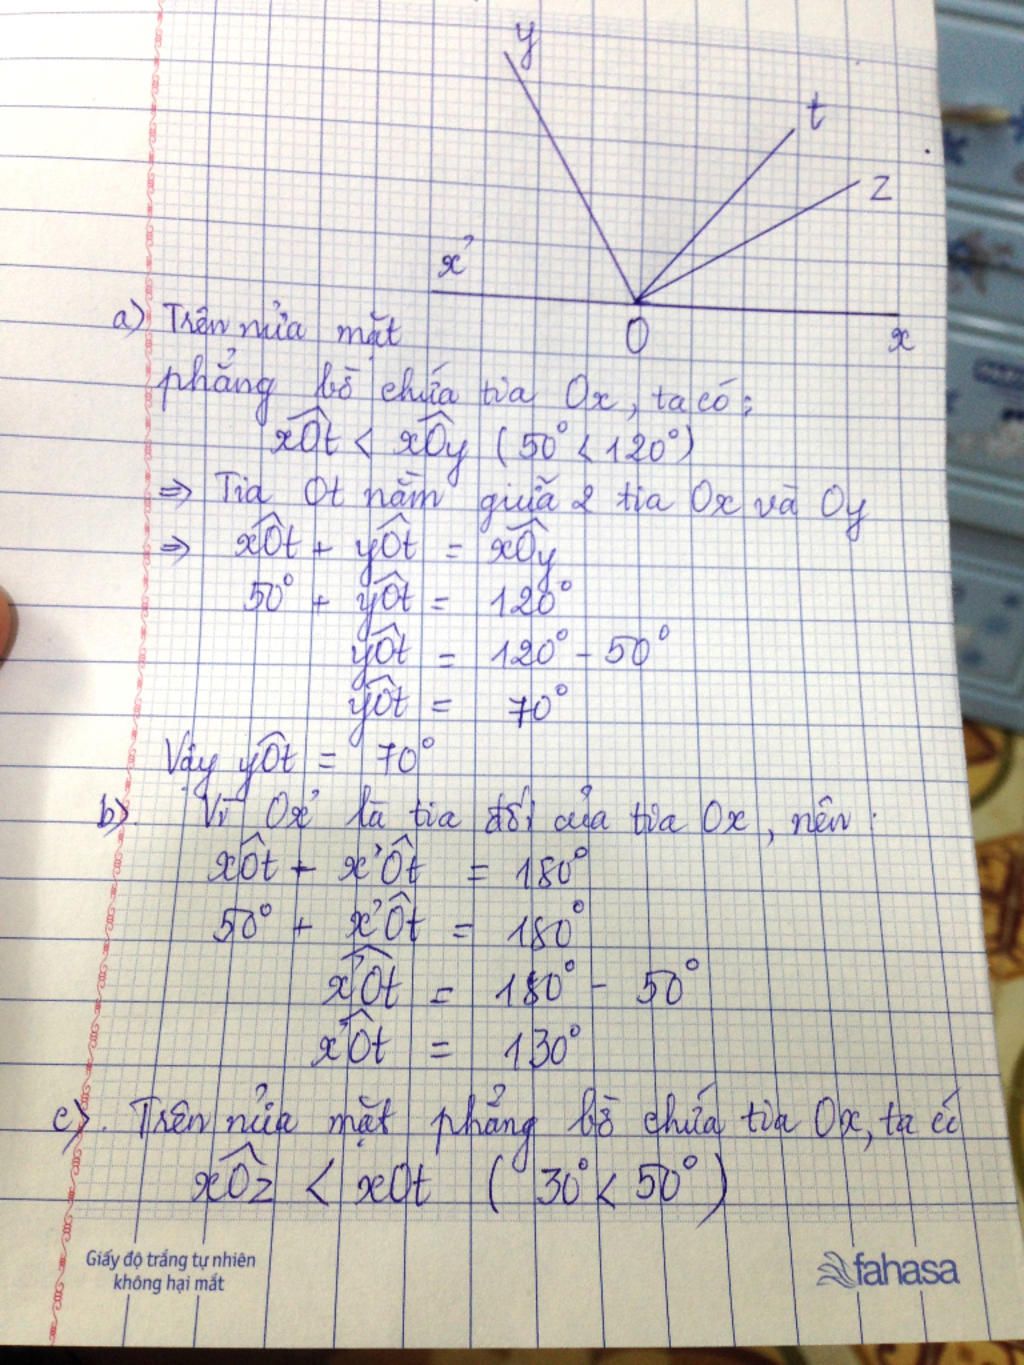 y
t
z
x'
O
x
a) Trên nửa mặt
phẳng bờ chứa tia Ox, ta có:
xÔt < xÔy (50° < 120°)
⇒ Tia Ot nằm giữa 2 tia Ox và Oy
⇒ xÔt + yÔt = xÔy
50° + yÔt = 120°
yÔt = 120° - 50°
yÔt = 70°
Vậy yÔt = 70°
b). Vì Ox' là tia đối của tia Ox, nên:
xÔt + x'Ôt = 180°
50° + x'Ôt = 180°
x'Ôt = 180° - 50°
x'Ôt = 130°
c). Trên nửa mặt phẳng bờ chứa tia Ox, ta có
xÔz < xOt (30° < 50°)
Giấy độ trắng tự nhiên
không hại mắt
fahasa